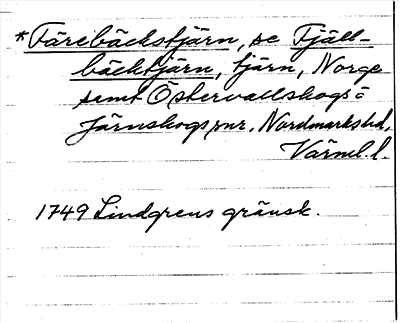 *Färebäckstjärn, se Fjäll-
bäckstjärn, tjärn, Norge
samt Östervallskogs o
Järnskogs snr, Nordmarks hd,
Värml. l.
1749 Lindgrens gränsk.